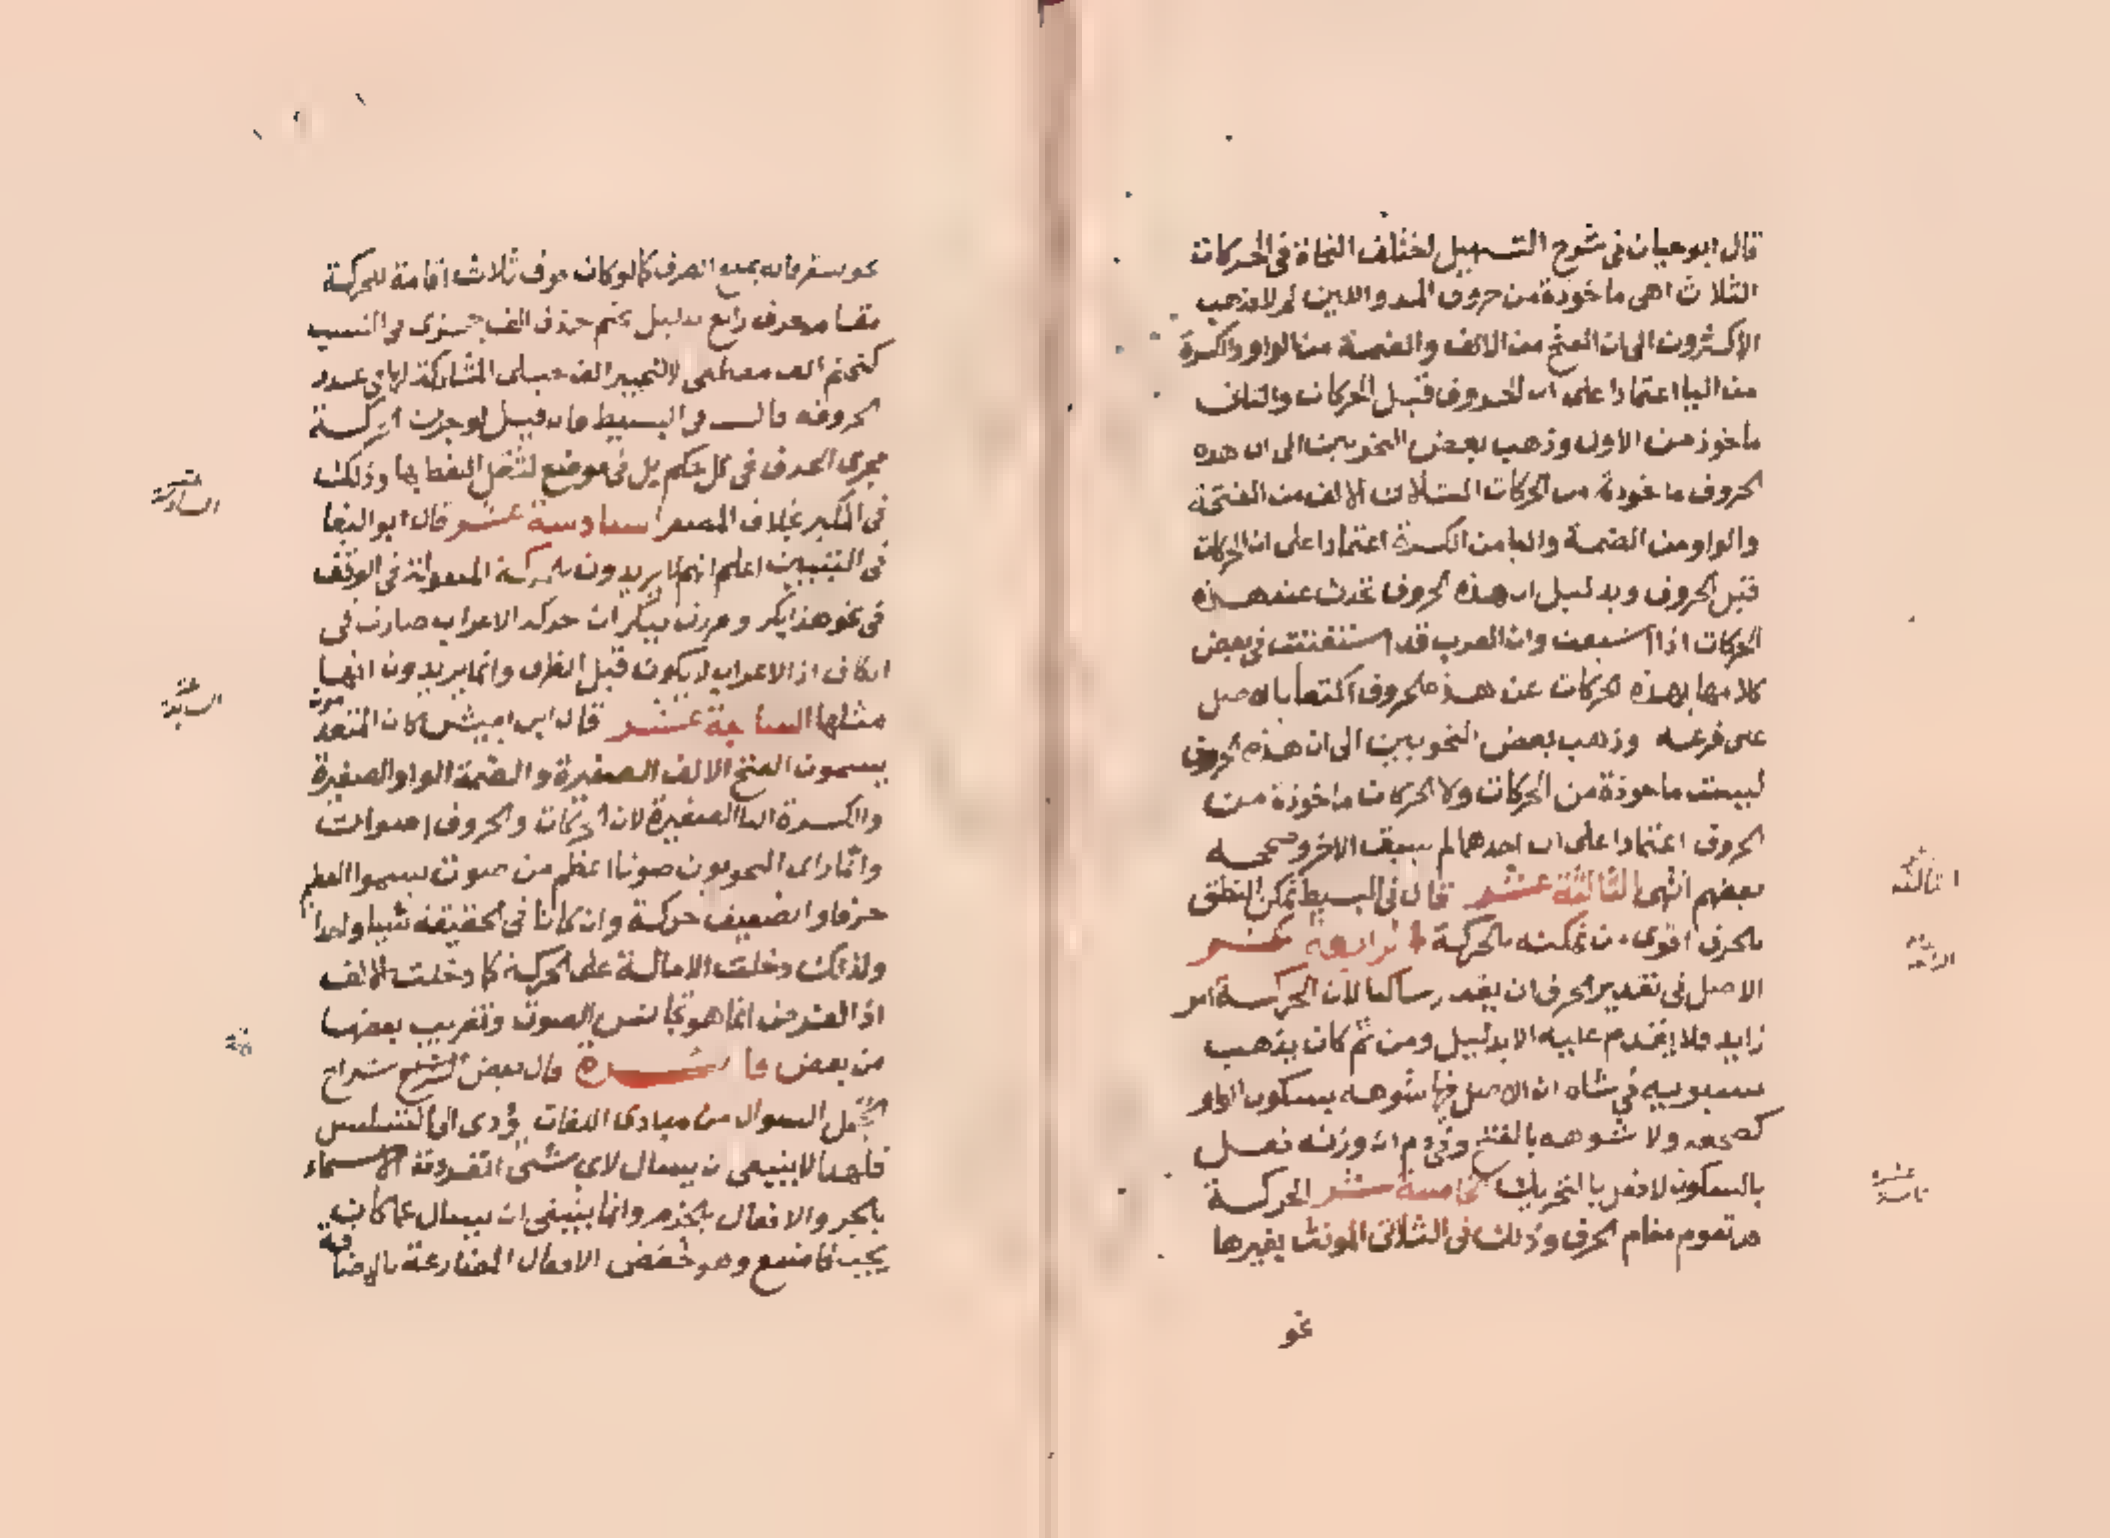 قال ابو حيان فى شرح التسهيل اختلف النحاة فى الحركات
الثلاث اهى ماخوذة من حروف المد واللين ام لا فذهب
الاكثرون الى ان الفتح من الالف والضمة من الواو والكسرة
من اليا اعتمادا على ان الحروف قبل الحركات والثانى
ماخوذ من الاول وذهب بعض النحويين الى ان هذه
الحروف ماخوذة من الحركات الثلاث الالف من الفتحة
والواو من الضمة واليا من الكسرة اعتمادا على ان الحركات
قبل الحروف وبدليل ان هذه الحروف تحدث عند هذه
الحركات اذا اشبعت وان العرب قد استغنت فى بعض
كلامها بهذه الحركات عن هذه الحروف اكتفا بالاصل
على فرعه وذهب بعض النحويين الى ان هذه الحروف
ليست ماخوذة من الحركات ولا الحركات ماخوذة من
الحروف اعتمادا على ان احدهما لم يسبق الاخر وصححه
بعضهم انتهى الثالثة عشر قال فى البسيط تمكن النطق
بالحرف اقوى من تمكنه بالحركة الرابعة عشر
الاصل فى تقدير الحرف ان يقدر ساكنا لان الحركة امر
زايد فلا يقدم عليه الا بدليل ومن ثم كان يذهب
سيبويه فى شاه ان الاصل فيها شوهه بسكون الواو
كصحفه ولا شوهه بالفتح وفى دم ان وزنه فعل
بالسكون لا فعل بالتحريك الخامسة عشر الحركة
قد تقوم مقام الحرف وذلك فى الثلاثى المونث بغيرها
نحو
الثالثة عشر
الرابعة
خامسة عشر
نحو سقر فانه يمنع الصرف كما لو كان فوق ثلاث اقامة للحركة
مقام حرف رابع بدليل تحتم حذف الف جمزى فى النسب
كتحتم الف مصطفى لا كتخيير الف حبلى المشاركة لها فى عدد
الحروف قال فى البسيط فان قيل لو جرت الحركة
مجرى الحرف فى كل حكم بل فى موضع لثقل اللفظ بها وذلك
فى المكبر بخلاف المصغر السادسة عشر قال ابو البقا
فى التبيين اعلم انهم لا يريدون بالحركة المنقولة فى الوقف
فى نحو هذا بكر ومررت ببكر ان حركة الاعراب صارت فى
الكاف اذ الاعراب لا يكون قبل الطرف وانما يريدون انها
مثلها السابعة عشر قال ابن يعيش كان المتقدمون
يسمون الفتح الالف الصغيرة والضمة الواو الصغيرة
والكسرة اليا الصغيرة لان الحركات والحروف اصوات
وانما راى النحويون صوتا اعظم من صوت فسموا العظيم
حرفا والضعيف حركة وان كانا فى الحقيقة شيا واحدا
ولذلك دخلت الامالة على الحركة كما دخلت الالف
اذ الغرض انما هو تجانس الصوت وتقريب بعضها
من بعض فايدة قال بعض شراح
الجمل السوال عن مبادى اللغات يؤدى الى التسلسل
فلهذا لا ينبغى ان يسال لاى شى انفردت الاسماء
بالجر والافعال بالجزم وانما ينبغى ان يسال عما كان
يجب فامتنع وهو خفض الافعال المضارعة بالاضافة
السادسة عشر
السابعة عشر